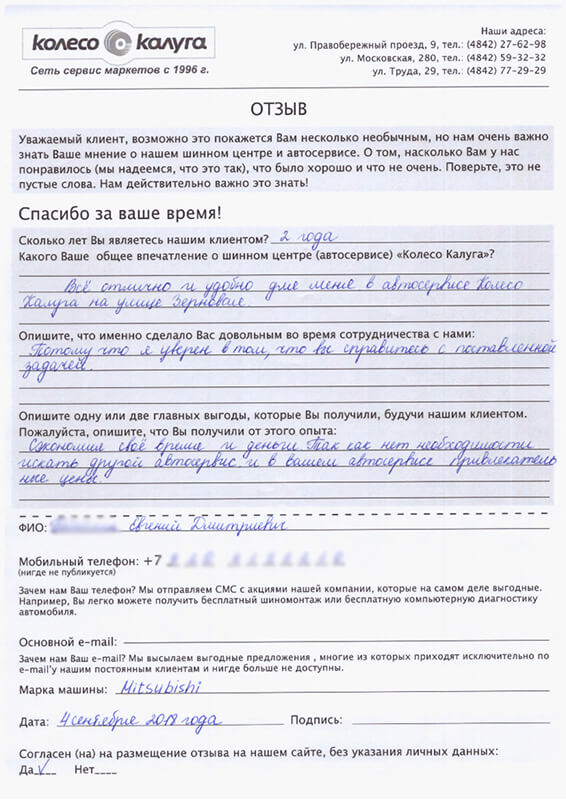 колесо калуга
Сеть сервис маркетов с 1996 г.
Наши адреса:
ул. Правобережный проезд, 9, тел.: (4842) 27-62-98
ул. Московская, 280, тел.: (4842) 59-32-32
ул. Труда, 29, тел.: (4842) 77-29-29
ОТЗЫВ
Уважаемый клиент, возможно это покажется Вам несколько необычным, но нам очень важно
знать Ваше мнение о нашем шинном центре и автосервисе. О том, насколько Вам у нас
понравилось (мы надеемся, что это так), что было хорошо и что не очень. Поверьте, это не
пустые слова. Нам действительно важно это знать!
Спасибо за ваше время!
Сколько лет Вы являетесь нашим клиентом? 2 года
Какого Ваше общее впечатление о шинном центре (автосервисе) «Колесо Калуга»?
Всё отлично и удобно для меня в автосервисе Колесо
Калуга на улице Зерновая.
Опишите, что именно сделало Вас довольным во время сотрудничества с нами:
Потому что я уверен в том, что вы справитесь с поставленной
задачей.
Опишите одну или две главных выгоды, которые Вы получили, будучи нашим клиентом.
Пожалуйста, опишите, что Вы получили от этого опыта:
Сэкономил своё время и деньги Так как нет необходимости
искать другой автосервис и в вашем автосервисе привлекатель
ные цены.
ФИО: Евгений Дмитриевич
Мобильный телефон: +7
(нигде не публикуется)
Зачем нам Ваш телефон? Мы отправляем СМС с акциями нашей компании, которые на самом деле выгодные.
Например, Вы легко можете получить бесплатный шиномонтаж или бесплатную компьютерную диагностику
автомобиля.
Основной e-mail:
Зачем нам Ваш e-mail? Мы высылаем выгодные предложения , многие из которых приходят исключительно по
e-mail'у нашим постоянным клиентам и нигде больше не доступны.
Марка машины: Mitsubishi
Дата: 4 сентября 2018 года Подпись:
Согласен (на) на размещение отзыва на нашем сайте, без указания личных данных:
Да Нет